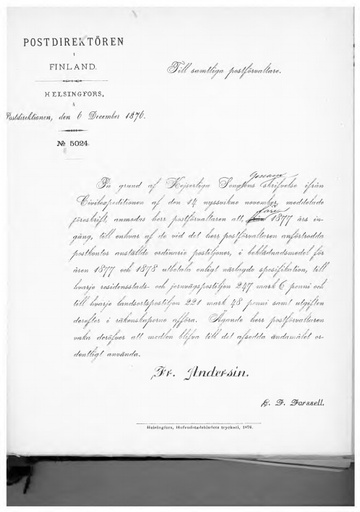 POSTDIREKTÖREN
i
FINLAND.
HELSINGFORS,
å
Postdirektionen, den 6 December 1876.
№ 5024.
Till samtliga postförvaltare.
genom
På grund af Kejserliga Senatens skrifvelse ifrån
Civilexpeditionen af den 14 nyssvikne november meddelade
före
föreskrift, anmodas herr postförvaltaren att, 1877 års in-
gång, till enhvar af de vid det herr postförvaltaren anförtrodda
postkontor anstälde ordinarie postiljoner, i beklädnadsmedel för
åren 1877 och 1878 utbetala enligt närlagde specifikation, till
hvarje residensstads- och jernvägspostiljon 247 mark 6 penni och
till hvarje landsortspostiljon 221 mark 48 penni samt utgiften
derefter i räkenskaperna afföra. Ägande herr postförvaltaren
vaka deröfver att medlen blifva till det afsedda ändamålet or-
dentligt använda.
Fr. Andersin.
K. J. Forssell.
Helsingfors, 1876.